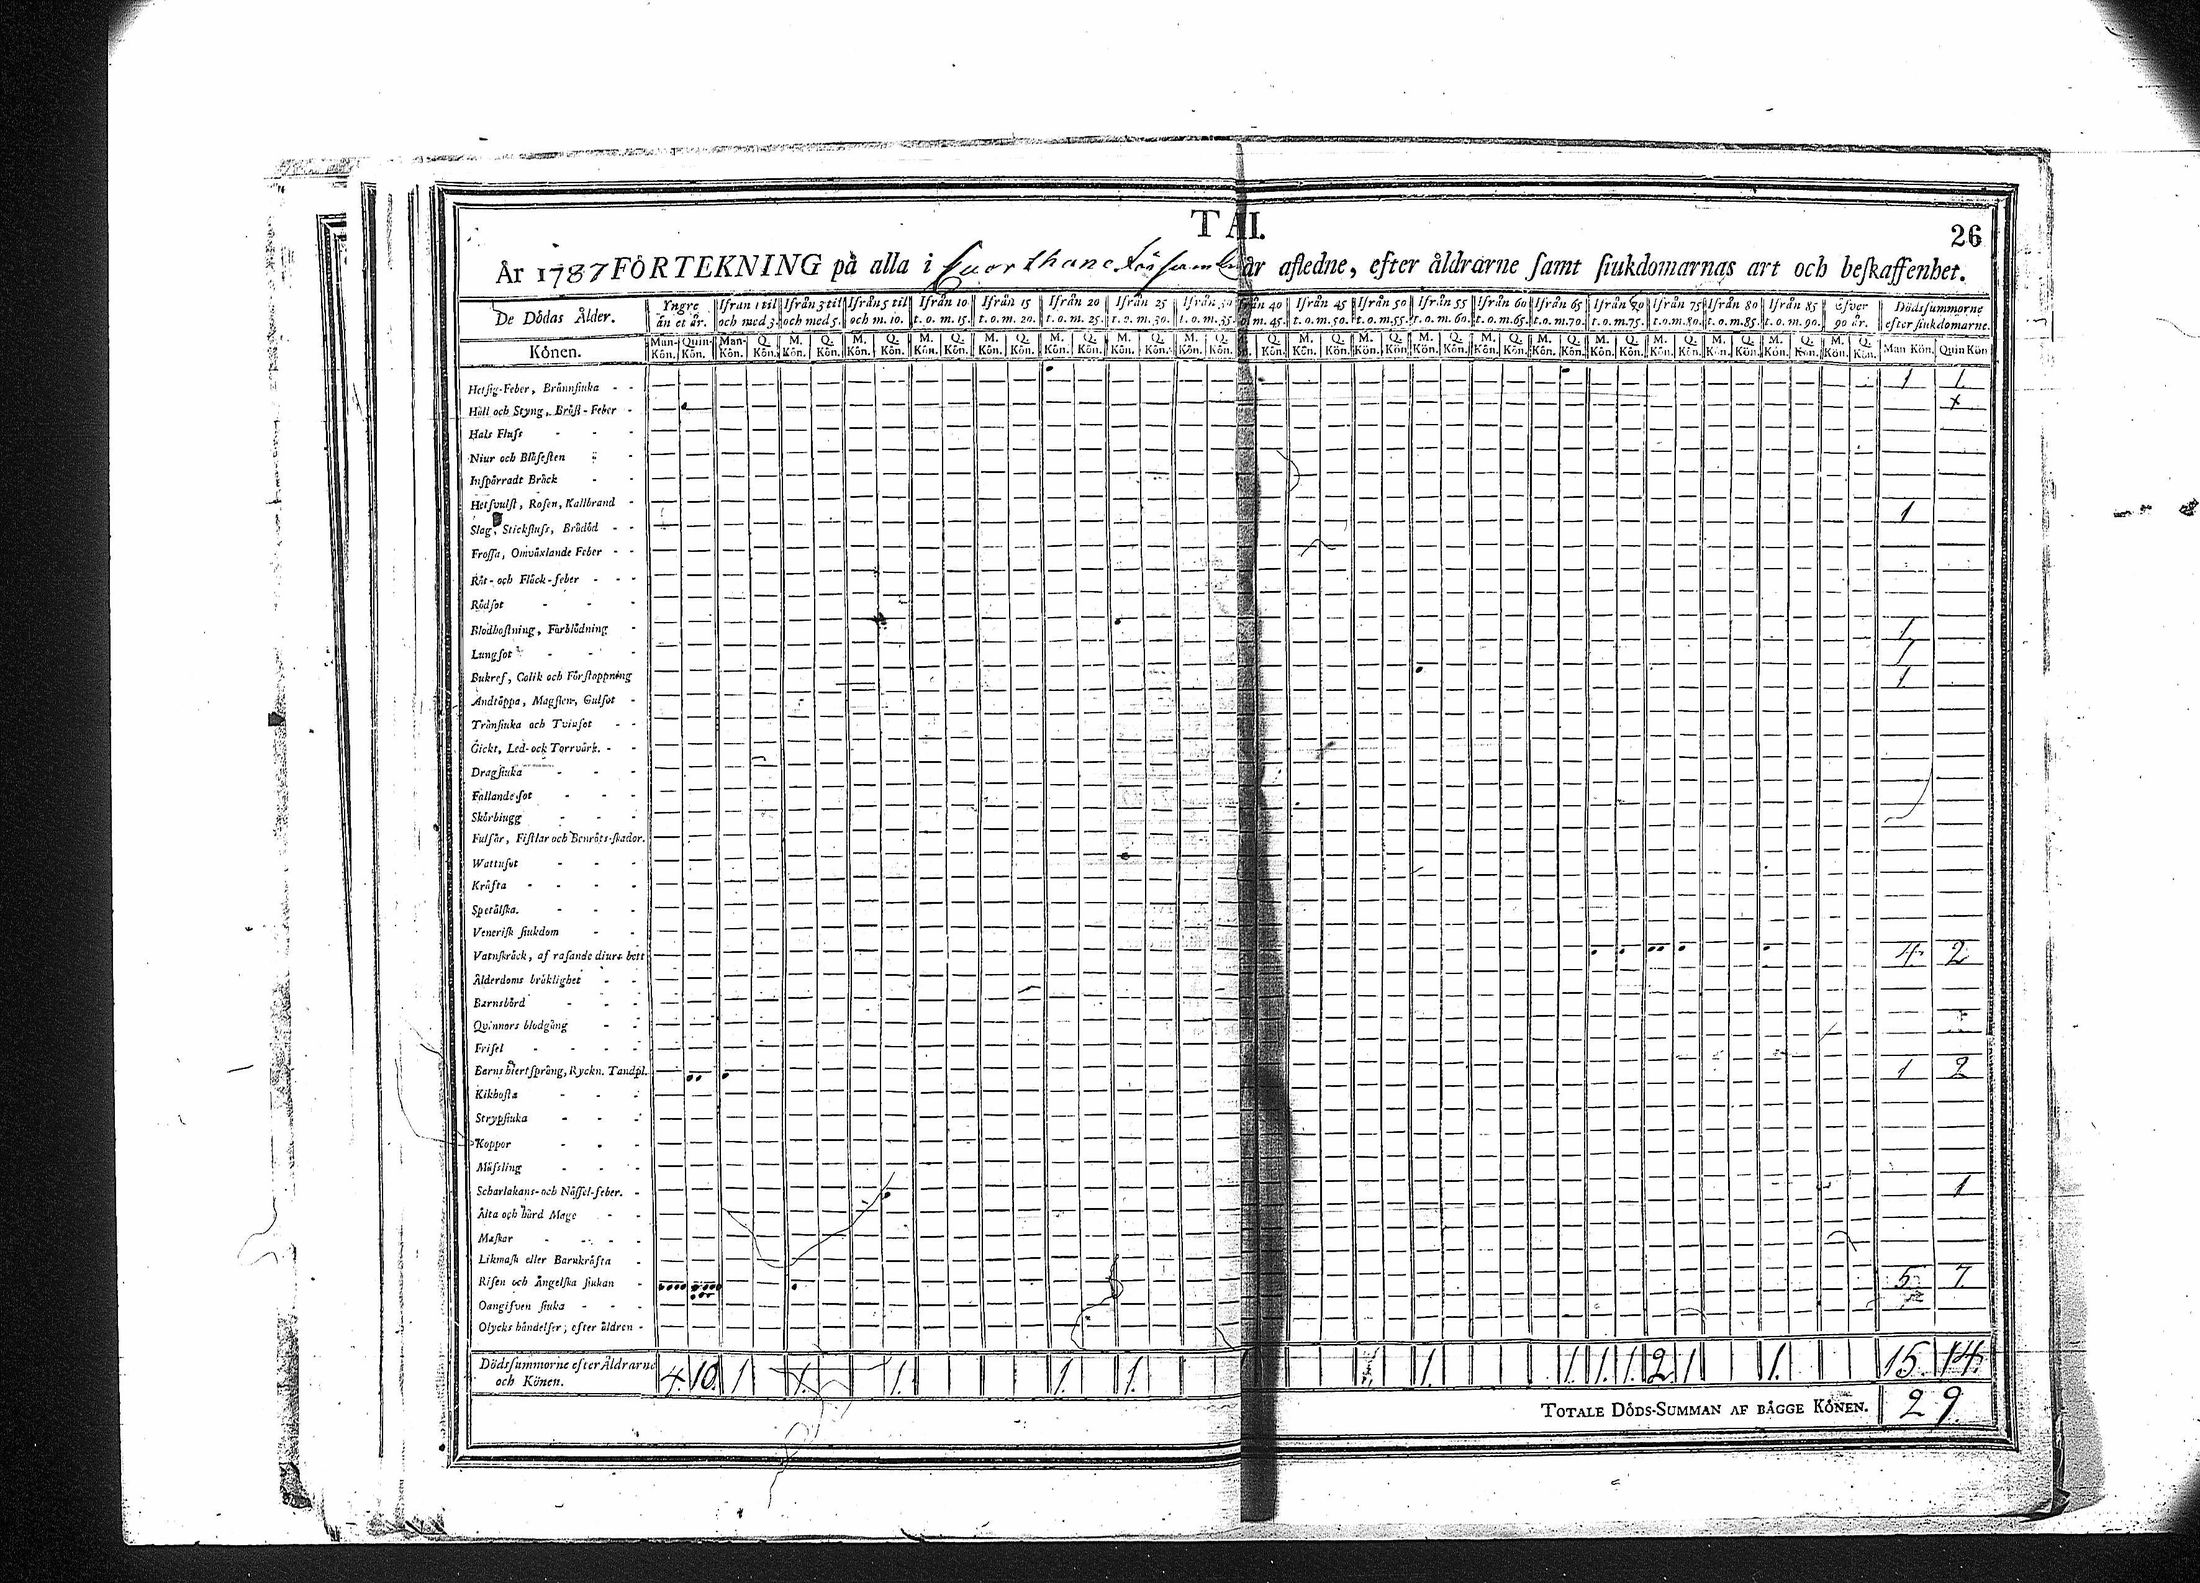 TAI.
26
År 1787 FÖRTEKNING på alla i Cuorthane Församl. år afledne, efter åldrarne samt siukdomarnas art och beskaffenhet.
De Dödas Ålder. Yngre än et år. Ifrån 1 til och med 3. Ifrån 3 til och med 5. Ifrån 5 til och m. 10. Ifrån 10 t. o. m. 15. Ifrån 15 t. o. m. 20. Ifrån 20 t. o. m. 25. Ifrån 25 t. o. m. 30. Ifrån 30 t. o. m. 35. 40 m. 45. Ifrån 45 t. o. m. 50. Ifrån 50 t. o. m. 55. Ifrån 55 t. o. m. 60. Ifrån 60 t. o. m. 65. Ifrån 65 t. o. m. 70. Ifrån 70 t. o. m. 75. Ifrån 75 t. o. m. 80. Ifrån 80 t. o. m. 85. Ifrån 85 t. o. m. 90. Efver 90 år. Dödssummorne efter siukdomarne.
Könen. Man-Kön. Quin-Kön. Man-Kön. Q. Kön. M. Kön. Q. Kön. M. Kön. Q. Kön. M. Kön. Q. Kön. M. Kön. Q. Kön. M. Kön. Q. Kön. M. Kön. Q. Kön. M. Kön. Q. Kön. Q. Kön. M. Kön. Q. Kön. M. Kön. Q. Kön. M. Kön. Q. Kön. M. Kön. Q. Kön. M. Kön. Q. Kön. M. Kön. Q. Kön. M. Kön. Q. Kön. M. Kön. Q. Kön. M. Kön. Q. Kön. M. Kön. Q. Kön. Man Kön. Quin Kön
Hetsig-Feber, Brännsiuka - - 1 1
Håll och Styng, Bröst-Feber -
Hals Fluss - - -
Niur och Blåsesten - -
Inspärradt Bråck - -
Hetsvulst, Rosen, Kallbrand -
Slag, Stickfluss, Brådöd - - 1
Frossa, Omväxlande Feber - -
Röt- och Fläck-feber - - -
Rödsot - - -
Blodhostning, Förblödning - 1
Lungsot - - - 1
Bukref, Colik och Förstoppning 1
Andtäppa, Magsten, Gulsot -
Trånsiuka och Tvinsot - -
Gickt, Led- ock Torrvärk. - -
Dragsiuka - - -
Fallande-sot - - -
Skörbiugg - - -
Fulsår, Fistlar och Benröts-skador.
Wattusot - - -
Kräfta - - - -
Spetälska. - - -
Venerisk siukdom - -
Vatnskräck, af rasande diurs bett 4 2
Ålderdoms bräklighet - -
Barnsbörd - - -
Qvinnors blodgång - -
Frisel - - - -
Barns hiertsprång, Ryckn. Tandpl. 1 2
Kikhosta - - -
Strypsiuka - - -
Koppor - - -
Mässling - - -
Scharlakans- och Nässel-feber. - 1
Älta och hård Mage - -
Maskar - - - -
Likmask eller Barnkräfta -
Risen och Ängelska siukan - 5 7
Oangifven siuka - - -
Olycks händelser; efter åldren -
Dödssummorne efter Åldrarne och Könen. 4. 10. 1 1. 1. 1. 1. 1. 1. 1. 1. 1. 2 1 1. 15 14.
TOTALE DÖDS-SUMMAN AF BÄGGE KÖNEN. 29.